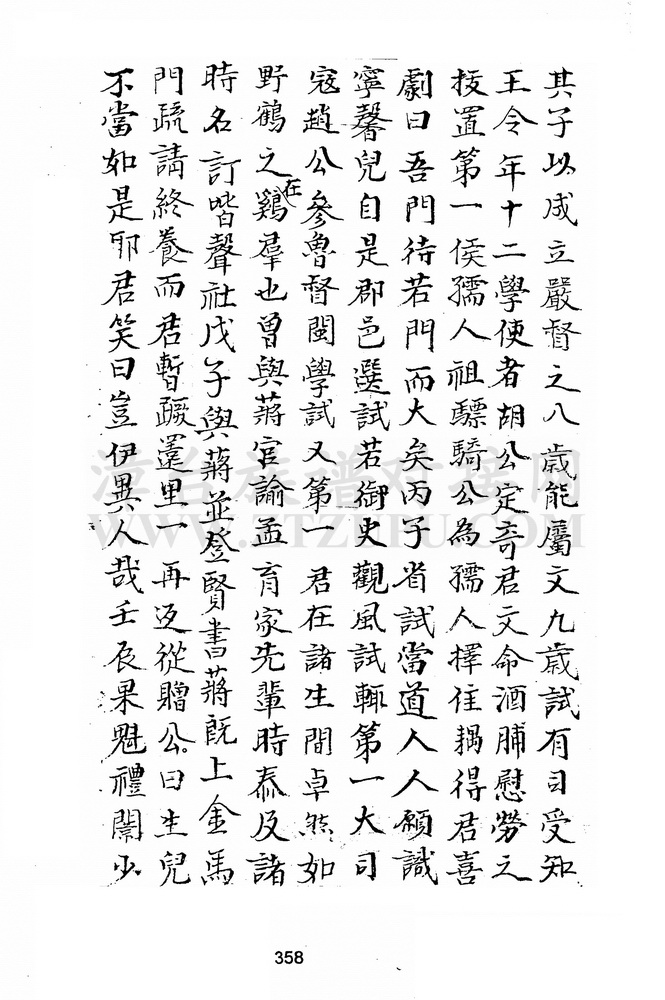 其子以成立嚴督之八歲能屬文九歲試有日受知
王令年十二學使者胡公定奇君文命酒脯慰勞之
拔置第一侯孺人祖驃騎公為孺人擇佳耦得君喜
劇曰吾門待若門而大矣丙子省試當道人人願識
寧馨兒自是郡邑選試若御史觀風試輒第一大司
寇趙公參魯督閩學試又第一君在諸生間卓然如
野鶴之在鷄羣也曾與蔣官諭孟育家先輩時泰及諸
時名訂皆聲社戊子與蔣並登賢書蔣既上金馬
門疏請終養而君暫蹶還里一再返從贈公曰生兒
不當如是邪君笑曰豈伊異人哉壬辰果魁禮闈少
淳台族谱对接网
WWW.ZTZUPU.COM
358